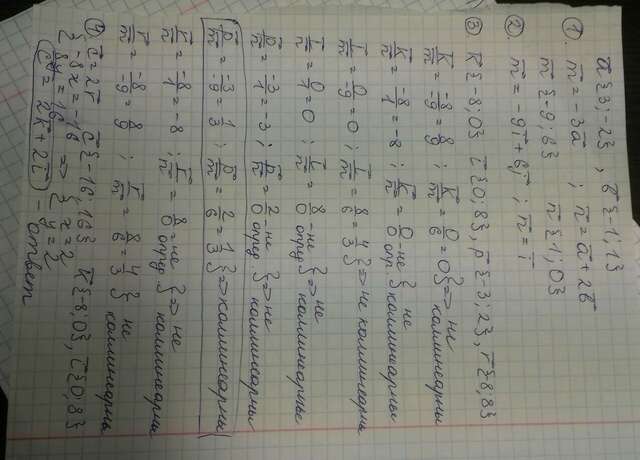 a̅ {3;-2} , b̅ {-1;1}
① m̅ = -3a̅ ; n̅ = a̅ + 2b̅
m̅ {-9; 6} n̅ {1; 0}
② m̅ = -9i̅ + 6j̅ ; n̅ = i̅
③ k̅ {-8;0} l̅ {0;8}, p̅ {-3;2}, r̅ {8,8}
k̅/m̅ = -8/-9 = 8/9 ; k̅/m̅ = 0/6 = 0 } => не коллинеарны
k̅/n̅ = -8/1 = -8 ; k̅/n̅ = 0/0 - не опр } не коллинеарны
l̅/m̅ = 0/-9 = 0 ; l̅/m̅ = 8/6 = 4/3 } => не коллинеарны
l̅/n̅ = 0/1 = 0 ; l̅/n̅ = 8/0 - не опред } => не коллинеарны
p̅/n̅ = -3/1 = -3 ; p̅/n̅ = 2/0 - не опред } => не коллинеарны
p̅/m̅ = -3/-9 = 1/3 ; p̅/m̅ = 2/6 = 1/3 } => коллинеарны
r̅/n̅ = -8/1 = -8 ; r̅/n̅ = 8/0 = не опред } => не коллинеарны
r̅/m̅ = -8/-9 = 8/9 ; r̅/m̅ = 8/6 = 4/3 } не коллинеарны
④ c̅ = 2r̅ c̅ {-16; 16} k̅ {-8;0}, l̅ {0; 8}
{ -8x = -16 => { x = 2
{ 8y = 16 { y = 2
c̅ = 2k̅ + 2l̅ - ответ